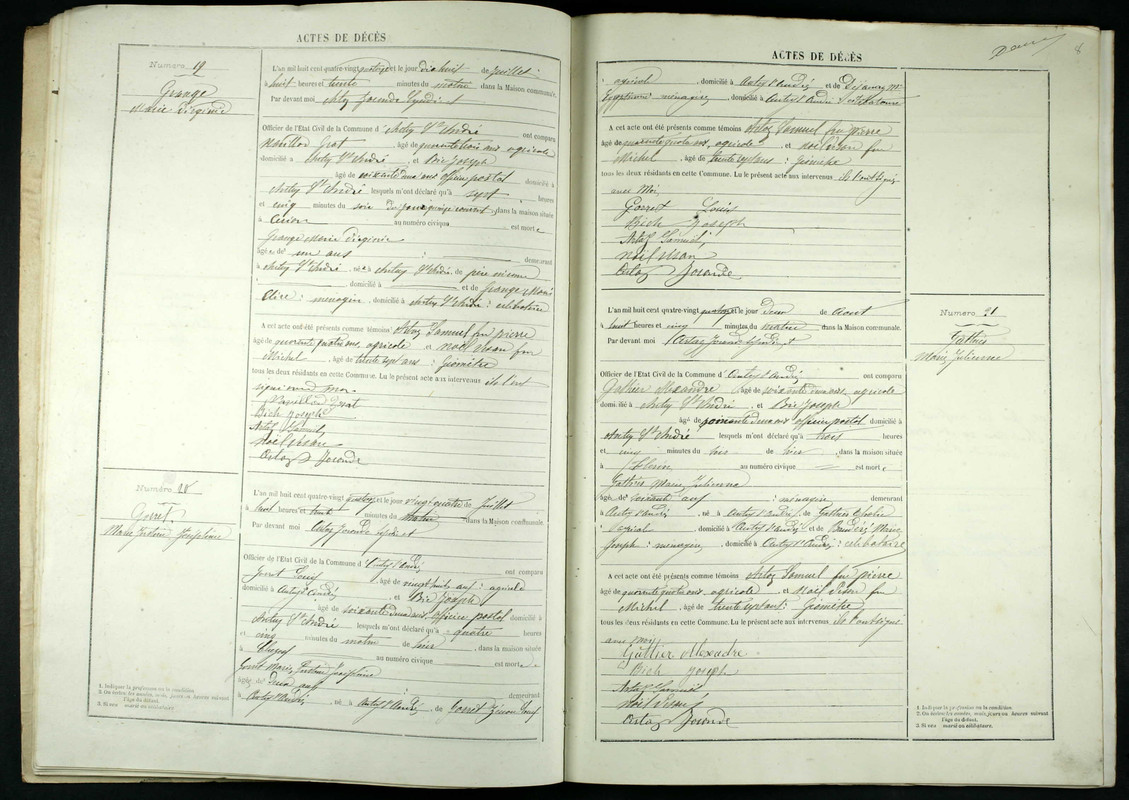 ACTES DE DÉCÈS
Numéro 19
Grange
Marie Virginie
L'an mil huit cent quatre-vingt quatorze et le jour dix huit de Juillet
à huit heures et trente minutes du matin dans la Maison communale.
Par devant moi Artaz Joconde Syndic et
Officier de l'Etat Civil de la Commune d'Antey St André ont comparu
Papillon Grat, âgé de quarante trois ans agricole
domicilié à Antey St André, et Bic Joseph
âgé de soixante deux ans officier postal domicilié à
Antey St André lesquels m'ont déclaré qu'à sept heures
et cinq minutes du soir de jour quinze courant, dans la maison située
à au numéro civique est morte
Grange Marie Virginie
âgée de un ans demeurant
à Antey St André, née à Antey St André de père inconnu
domicilié à et de Grange Marie
ménagère, domicilié à Antey St André : célibataire
A cet acte ont été présents comme témoins Artaz Samuel feu Pierre
âgé de quarante quatre ans, agricole et Noël Vison feu
Michel, âgé de trente sept ans : Géomètre
tous les deux résidants en cette Commune. Lu le présent acte aux intervenus ils l'ont
signé avec moi
Papillon Grat
Bich Joseph
Artaz Samuel
Noël Vison
Artaz Joconde
Numéro 20
Gorret
Marie Faustine Joséphine
L'an mil huit cent quatre-vingt quatorze et le jour vingt quatre de Juillet
à huit heures et trente minutes du matin dans la Maison communale.
Par devant moi Artaz Joconde syndic et
Officier de l'Etat Civil de la Commune d'Antey St André ont comparu
Gorret Louis, âgé de vingt huit ans : agricole
domicilié à Antey St André, et Bic Joseph
âgé de soixante deux ans officier postal domicilié à
Antey St André lesquels m'ont déclaré qu'à quatre heures
et cinq minutes du matin de hier, dans la maison située
à au numéro civique est morte
Gorret Marie Faustine Joséphine
âgée de deux ans demeurant
à Antey St André, née à Antey St André, de Gorret
1. Indiquer la profession ou la condition.
2. On écrira les années, mois, jours ou heures suivant
l'âge du défunt.
3. Si veu marié ou célibataire.
ACTES DE DÉCÈS
8
agricole, domicilié à Antey St André et de
ménagère, domicilié à Antey St André
A cet acte ont été présents comme témoins Artaz Samuel feu Pierre
âgé de quarante quatre ans, agricole et Noël Vison feu
Michel, âgé de trente sept ans : Géomètre
tous les deux résidants en cette Commune. Lu le présent acte aux intervenus ils l'ont signé
avec moi
Gorret Louis
Bich Joseph
Artaz Samuel
Noël Vison
Artaz Joconde
Numéro 21
Gathier
Marie Julienne
L'an mil huit cent quatre-vingt quatorze et le jour Deux de Août
à huit heures et cinq minutes du matin, dans la Maison communale.
Par devant moi Artaz Joconde Syndic et
Officier de l'Etat Civil de la Commune d'Antey St André ont comparu
Gathier Alexandre âgé de soixante deux ans, agricole
domicilié à Antey St André, et Bic Joseph
âgé de soixante deux ans officier postal domicilié à
Antey St André lesquels m'ont déclaré qu'à trois heures
et cinq minutes du soir de hier, dans la maison située
à au numéro civique est morte
Gathier Marie Julienne
âgée de soixante ans : ménagère demeurant
à Antey St André, née à Antey St André, de Gathier
agricole domicilié à Antey St André et de Marie
Joseph : ménagère, domiciliée à Antey St André : célibataire
A cet acte ont été présents comme témoins Artaz Samuel feu Pierre
âgé de quarante quatre ans, agricole et Noël Vison feu
Michel, âgé de trente sept ans : Géomètre
tous les deux résidants en cette Commune. Lu le présent acte aux intervenus ils l'ont signé
avec moi
Gathier Alexandre
Bich Joseph
Artaz Samuel
Noël Vison
Artaz Joconde
1. Indiquer la profession ou la condition.
2. On écrira les années, mois, jours ou heures suivant
l'âge du défunt.
3. Si veu marié ou célibataire.